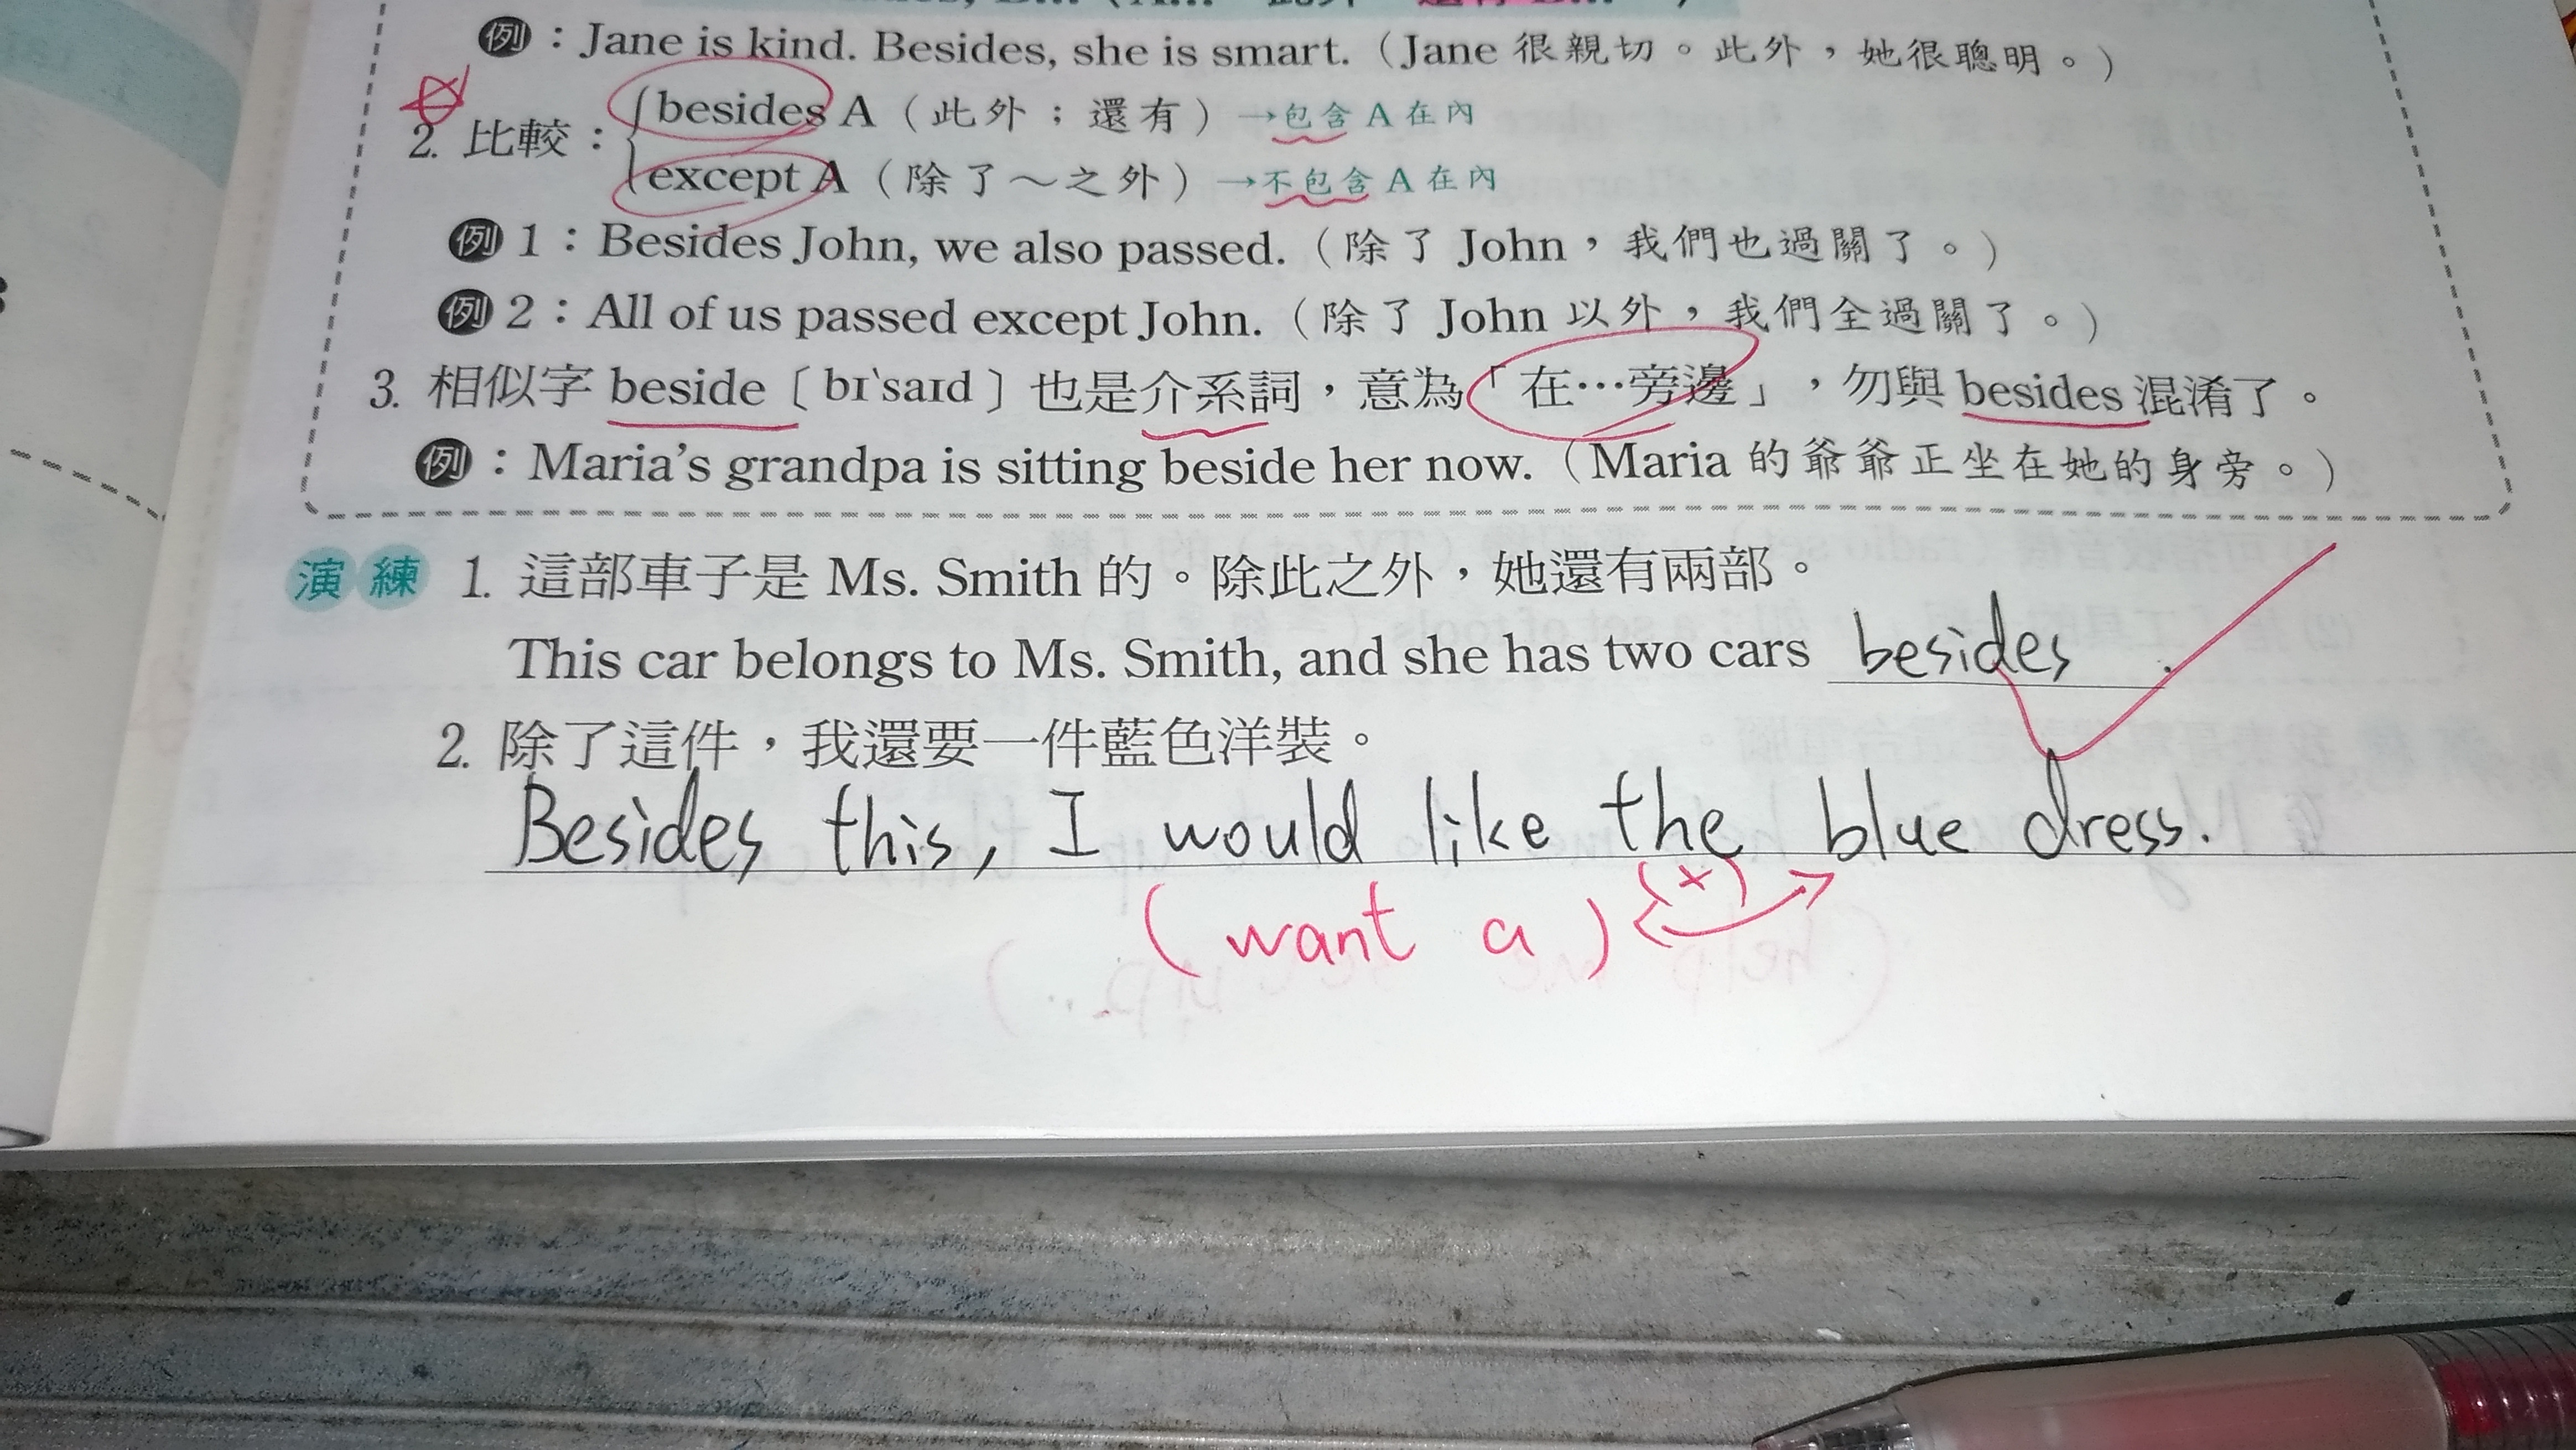 例：Jane is kind. Besides, she is smart.（Jane 很親切。此外，她很聰明。）
2. 比較：
besides A（此外；還有）→包含 A 在內
except A（除了～之外）→不包含 A 在內
例 1：Besides John, we also passed.（除了 John，我們也過關了。）
例 2：All of us passed except John.（除了 John 以外，我們全過關了。）
3. 相似字 beside〔bɪˋsaɪd〕也是介系詞，意為「在…旁邊」，勿與 besides 混淆了。
例：Maria's grandpa is sitting beside her now.（Maria 的爺爺正坐在她的身旁。）
演練 1. 這部車子是 Ms. Smith 的。除此之外，她還有兩部。
This car belongs to Ms. Smith, and she has two cars besides.
2. 除了這件，我還要一件藍色洋裝。
Besides this, I would like the blue dress.
(want a) (x)